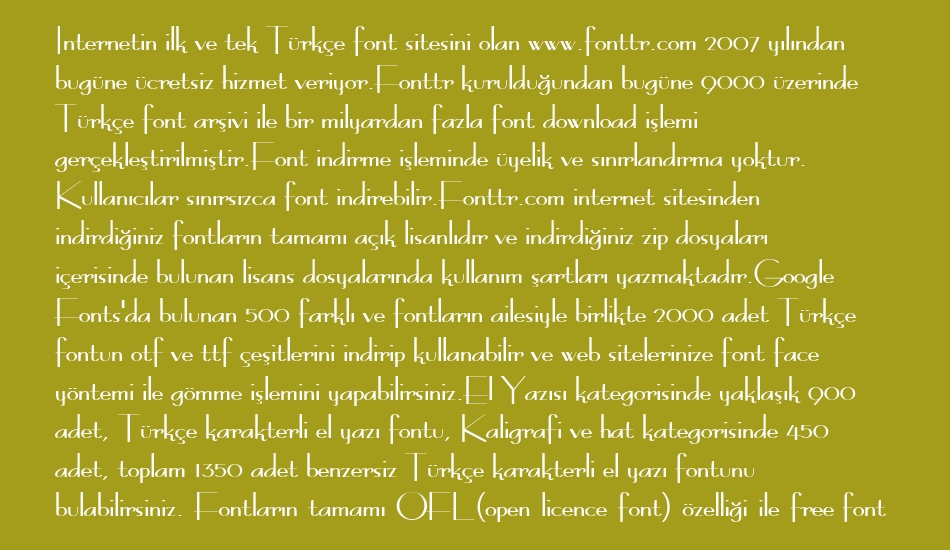 Internetin ilk ve tek Türkçe font sitesini olan www.fonttr.com 2007 yılından
bugüne ücretsiz hizmet veriyor.Fonttr kurulduğundan bugüne 9000 üzerinde
Türkçe font arşivi ile bir milyardan fazla font download işlemi
gerçekleştirilmiştir.Font indirme işleminde üyelik ve sınırlandırma yoktur.
Kullanıcılar sınırsızca font indirebilir.Fonttr.com internet sitesinden
indirdiğiniz fontların tamamı açık lisanlıdır ve indirdiğiniz zip dosyaları
içerisinde bulunan lisans dosyalarında kullanım şartları yazmaktadır.Google
Fonts'da bulunan 500 farklı ve fontların ailesiyle birlikte 2000 adet Türkçe
fontun otf ve ttf çeşitlerini indirip kullanabilir ve web sitelerinize font face
yöntemi ile gömme işlemini yapabilirsiniz.El Yazısı kategorisinde yaklaşık 900
adet, Türkçe karakterli el yazı fontu, Kaligrafi ve hat kategorisinde 450
adet, toplam 1350 adet benzersiz Türkçe karakterli el yazı fontunu
bulabilirsiniz. Fontların tamamı OFL(open licence font) özelliği ile free font